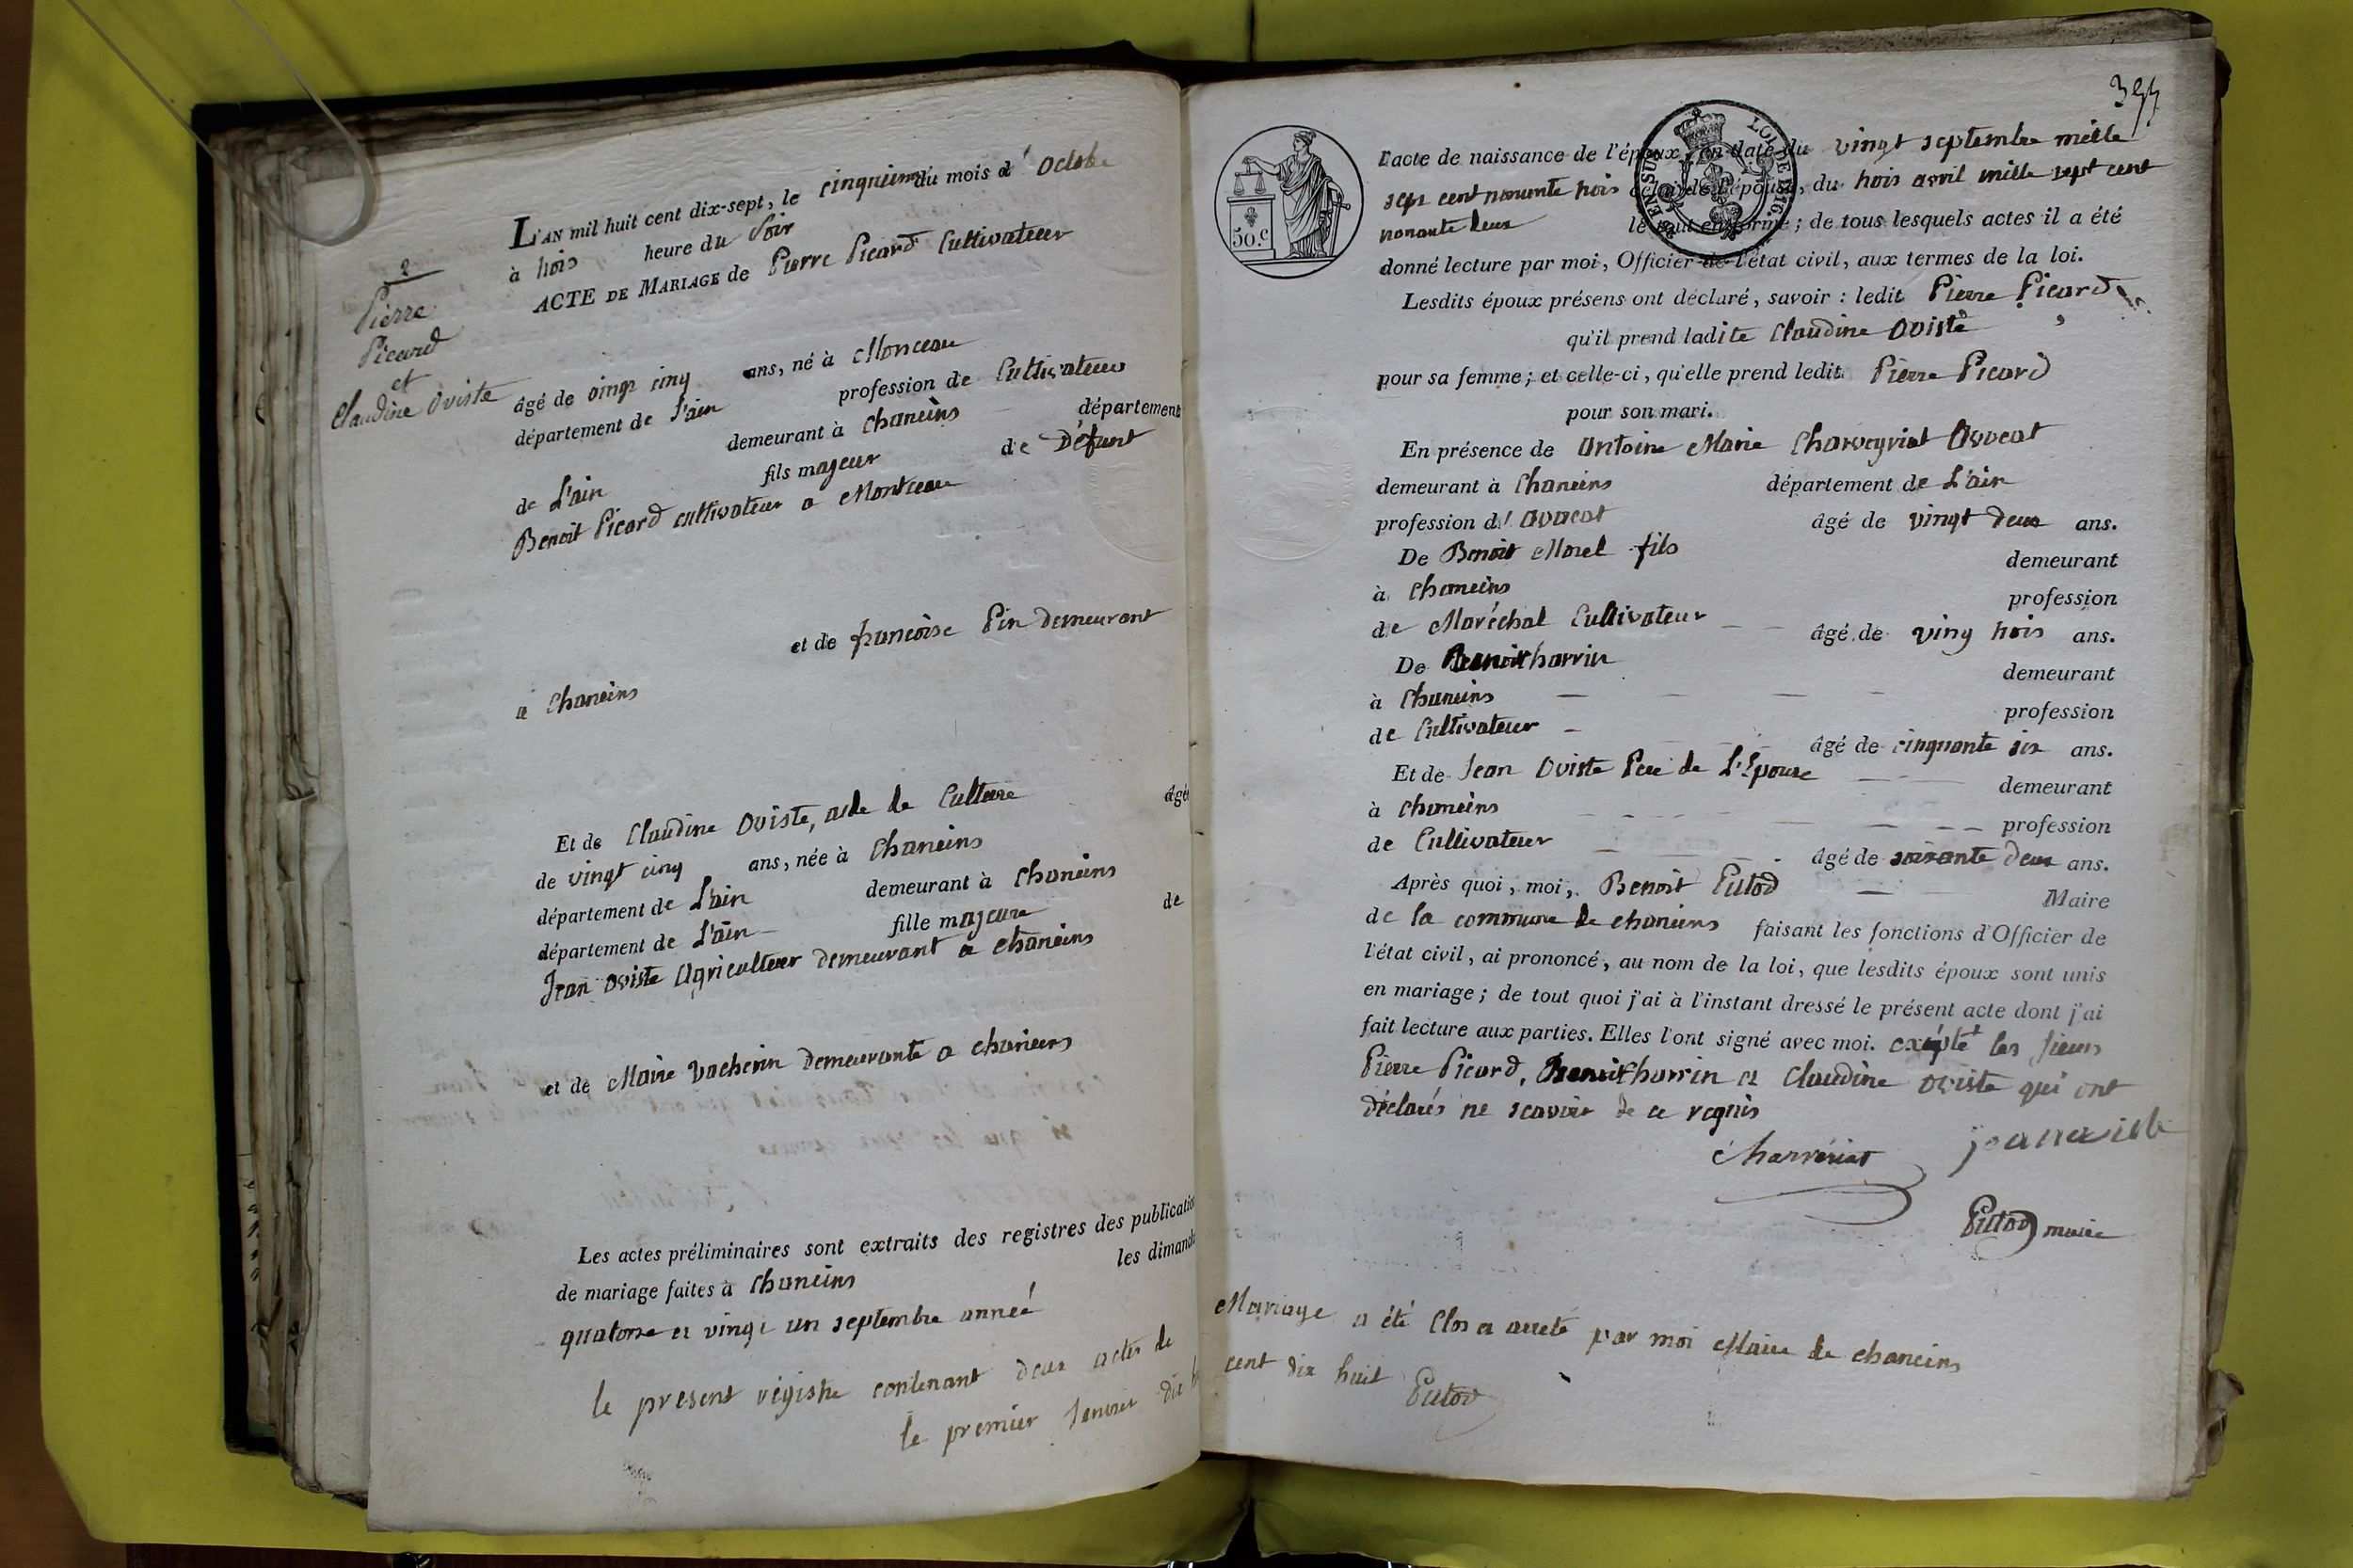 2
Pierre
Picard
et
Claudine Oviste
L'AN mil huit cent dix-sept, le cinquieme du mois d' Octobre
à trois heure du Soir
ACTE DE MARIAGE de Pierre Picard Cultivateur
âgé de vingt cinq ans, né à Monceau
département de L'ain profession de Cultivateur
demeurant à Chaneins département
de L'ain fils majeur de Défunt
Benoit Picard cultivateur a Montceau
et de francoise Pin demeurant
a Chaneins
Et de Claudine Oviste, aide de Culture âgé
de vingt cinq ans, née à Chaneins
département de L'ain demeurant à Chaneins
département de L'ain fille majeure de
Jean Oviste Agriculteur demeurant a chaneins
et de Marie Vacherin demeurante a chaneins
Les actes préliminaires sont extraits des registres des publication
de mariage faites à Chaneins les dimanch
quatorze et vingt un septembre année
le present régistre contenant deux actes de
le premier Janvier dix h
395
50.c
EN SUS
LOI DE 1816.
L'acte de naissance de l'époux, en date du vingt septembre mille
sept cent nonante trois celui de l'épouse, du trois avril mille sept cent
nonante deux le tout en forme; de tous lesquels actes il a été
donné lecture par moi, Officier de l'état civil, aux termes de la loi.
Lesdits époux présens ont déclaré, savoir : ledit Pierre Picard
qu'il prend ladite Claudine Oviste
pour sa femme; et celle-ci, qu'elle prend ledit Pierre Picard
pour son mari.
En présence de Antoine Marie Charveyriat Avocat
demeurant à Chaneins département de L'ain
profession d' avocat âgé de vingt deux ans.
De Benoit Morel fils demeurant
à Chaneins profession
de Maréchal Cultivateur âgé de vingt trois ans.
De Benoit harrin demeurant
à Chaneins profession
de Cultivateur âgé de cinquante six ans.
Et de Jean Oviste Pere de L'Epouse demeurant
à Chaneins profession
de Cultivateur âgé de soixante deux ans.
Après quoi, moi, Benoit Putod Maire
de la commune de chaneins faisant les fonctions d'Officier de
l'état civil, ai prononcé, au nom de la loi, que lesdits époux sont unis
en mariage; de tout quoi j'ai à l'instant dressé le présent acte dont j'ai
fait lecture aux parties. Elles l'ont signé avec moi. excépté les sieurs
Pierre Picard, Benoit harrin et Claudine Oviste qui ont
déclarés ne scavoir de ce requis
Charvériat
Putod maire
Mariage a été Clos et arreté par moi Maire de chaneins
cent dix huit Putod